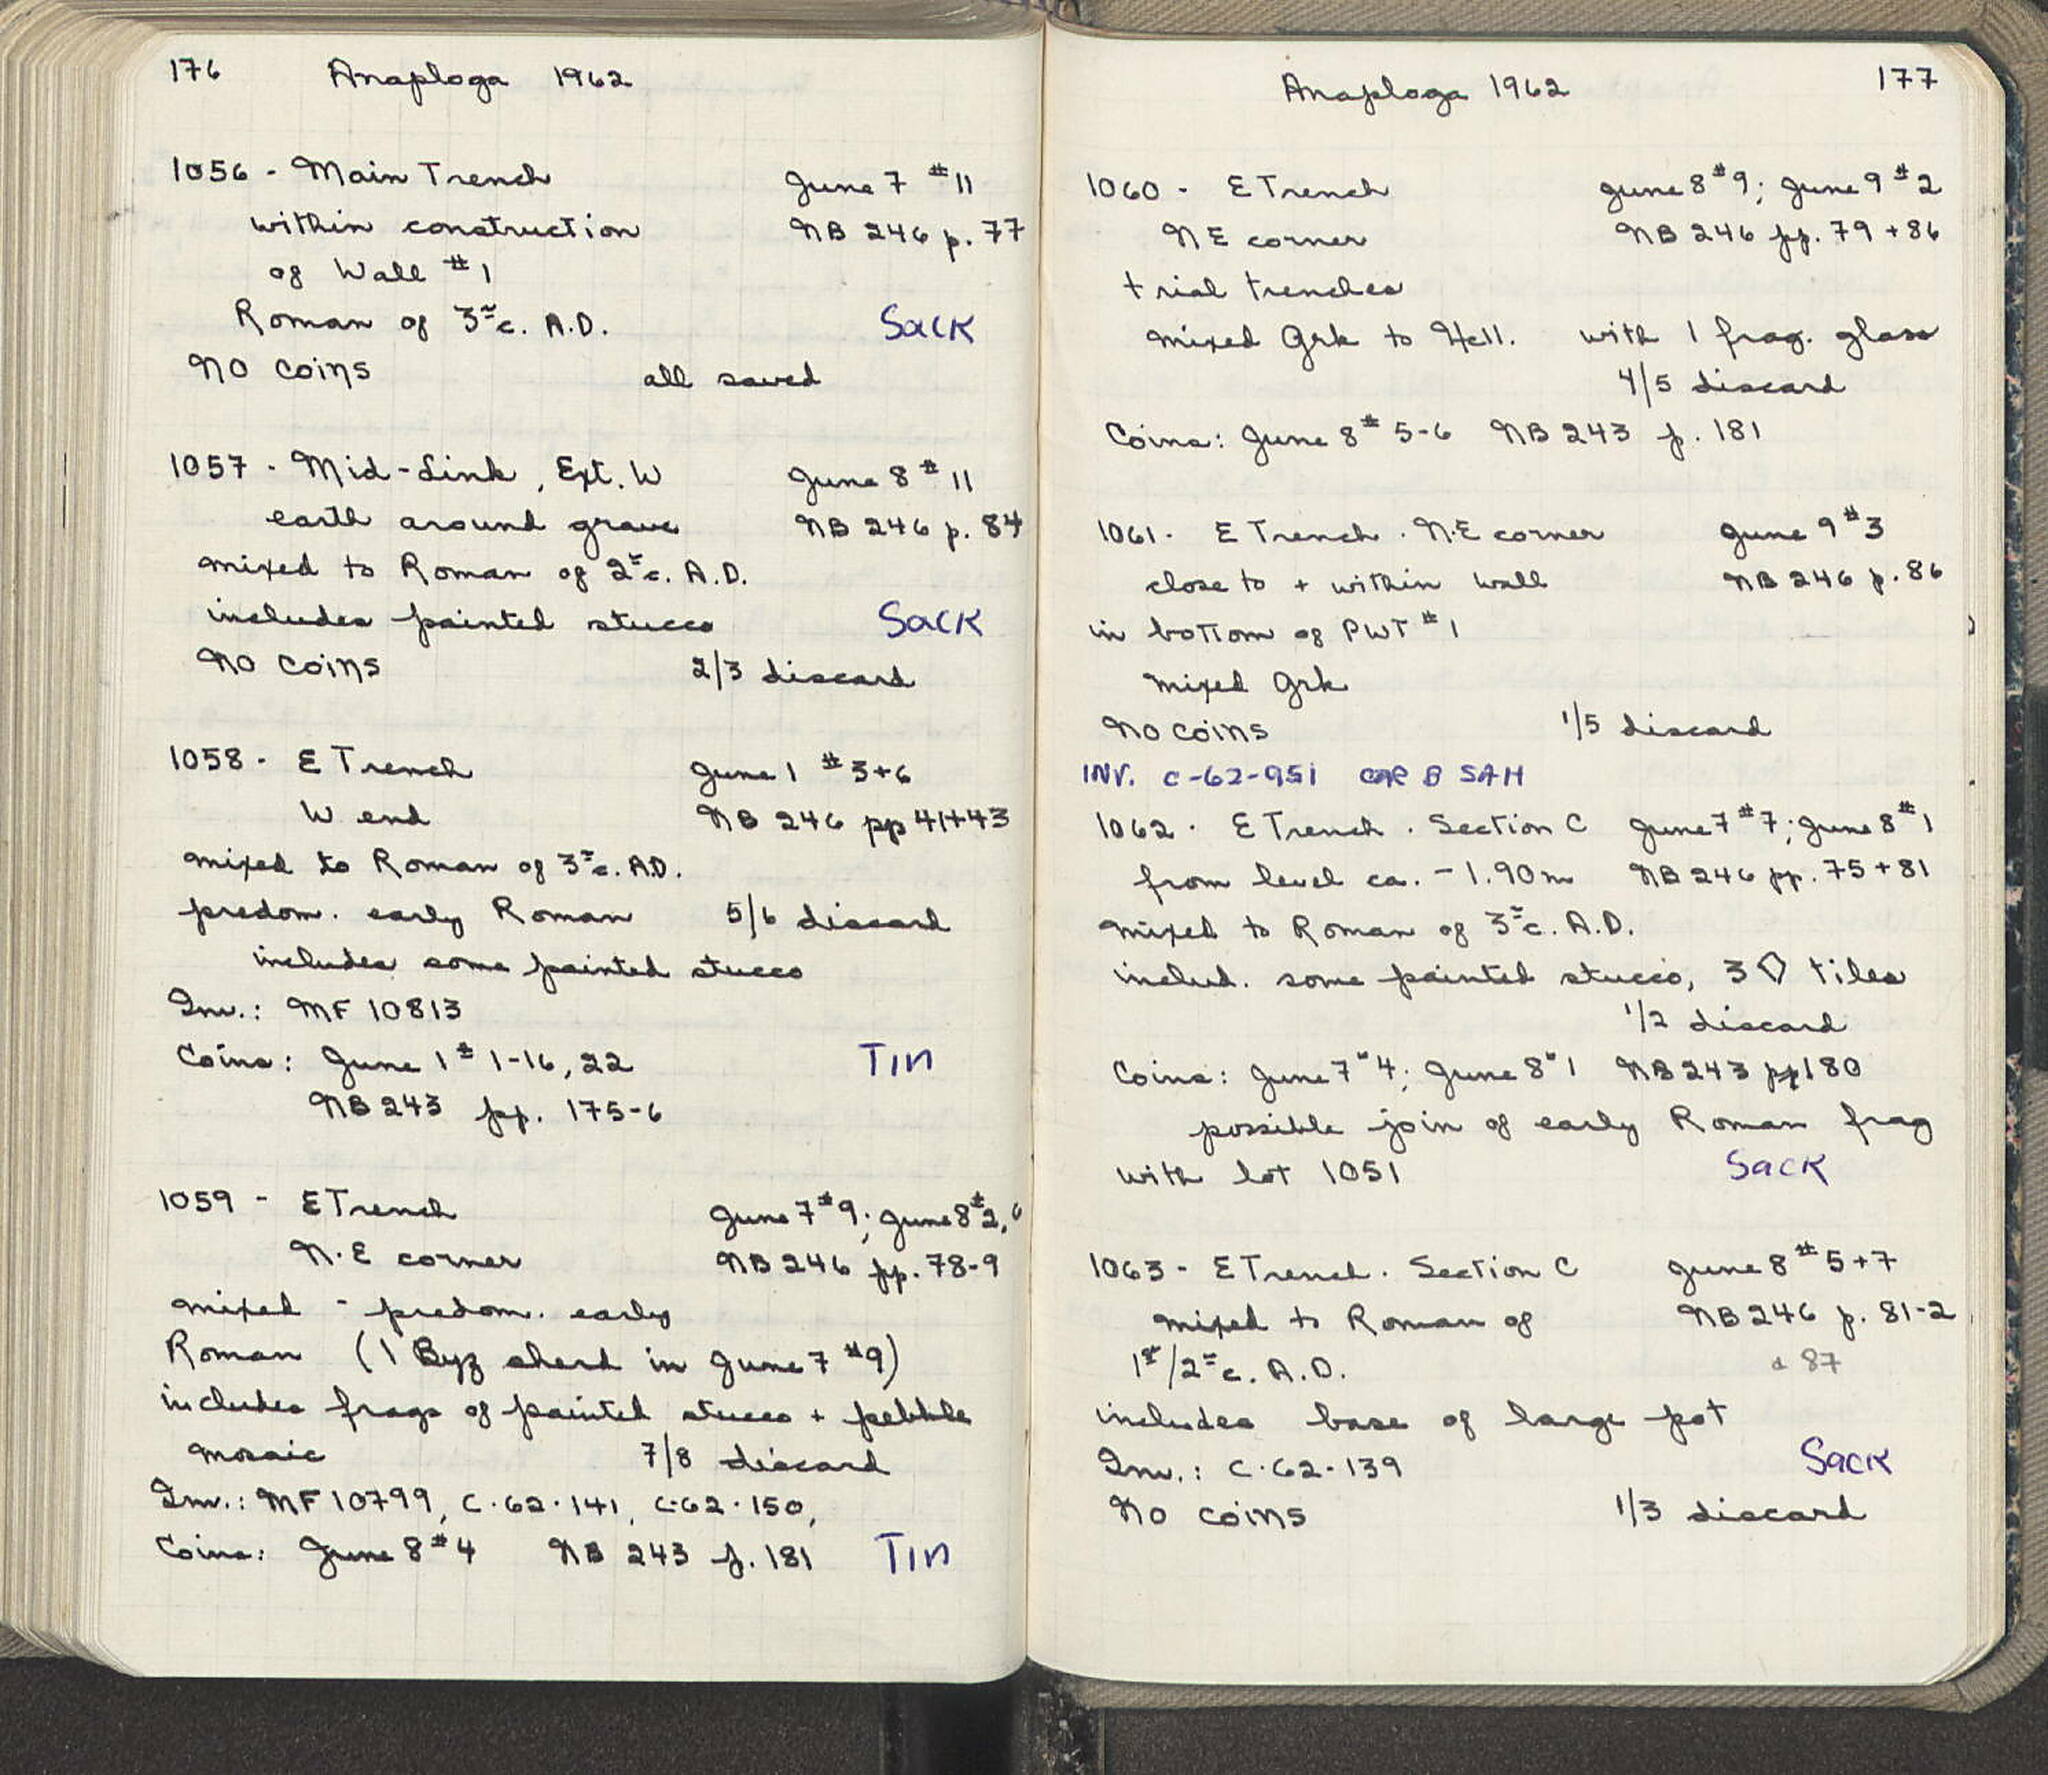 176 Anaploga 1962
1056 - Main Trench June 7 #11
within construction NB 246 p. 77
of Wall #1
Roman of 3rd c. A.D. Sack
No coins all saved
1057 - Mid-Link, Ext. W June 8 #11
earth around grave NB 246 p. 84
mixed to Roman of 2nd c. A.D.
includes painted stucco Sack
No coins 2/3 discard
1058 - E Trench June 1 #3+6
W end NB 246 pp 41+43
mixed to Roman of 3rd c. A.D.
predom. early Roman 5/6 discard
includes some painted stucco
Inv.: MF 10813
Coins: June 1 # 1-16, 22 Tin
NB 243 pp. 175-6
1059 - E Trench June 7 #9; June 8 #2, 6
N.E corner NB 246 pp. 78-9
mixed - predom. early
Roman (1 Byz sherd in June 7 #9)
includes frags of painted stucco + pebble
mosaic 7/8 discard
Inv.: MF 10799, C.62.141, C.62.150,
Coins: June 8 #4 NB 243 p. 181 Tin
Anaploga 1962 177
1060 - E Trench June 8 #9; June 9 #2
NE corner NB 246 pp. 79+86
trial trenches
mixed Grk to Hell. with 1 frag. glass
4/5 discard
Coins: June 8 # 5-6 NB 243 p. 181
1061. E Trench. N.E corner June 9 #3
close to + within wall NB 246 p. 86
in bottom of PWT #1
mixed Grk
No coins 1/5 discard
INV. C-62-951 COR B SAH
1062. E Trench. Section C June 7 #7; June 8 #1
from level ca. -1.90m NB 246 pp. 75+81
mixed to Roman of 3rd c. A.D.
includ. some painted stucco, 3 ◊ tiles
1/2 discard
Coins: June 7 #4; June 8 #1 NB 243 pp180
possible join of early Roman frag
with lot 1051 Sack
1063 - E Trench. Section C June 8 #5+7
mixed to Roman of NB 246 p. 81-2
1st/2nd c. A.D. & 87
includes base of large pot
Inv.: C.62.139 Sack
No coins 1/3 discard